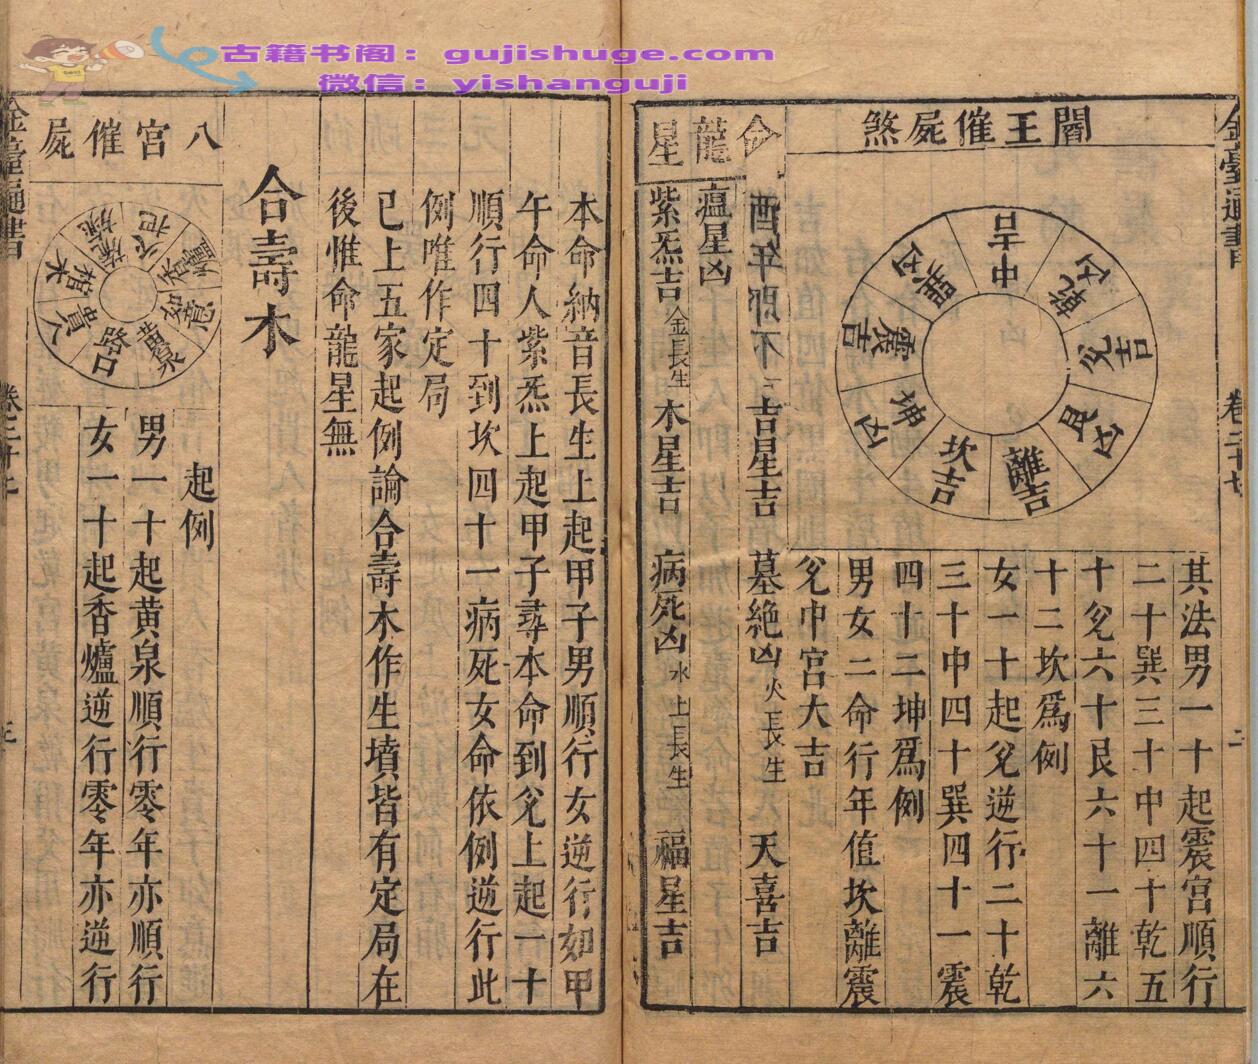 古籍书阁：gujishuge.com
微信：yishanguji
閻王催屍煞
中吉
乾凶
兌吉
艮凶
離吉
坎吉
坤凶
震吉
巽凶
其法男一十起震宮順行
二十巽三十中四十乾五
十兌六十艮六十一離六
十二坎爲例
女一十起兌逆行二十乾
三十中四十巽四十一震
四十二坤爲例
男女二命行年值坎離震
兌中宮大吉
金龍星
吉星吉 墓絕凶 火長生 天喜吉
瘟星凶
紫炁吉 金長生 木星吉 病死凶 水土長生 福星吉
卷二十七
二
本命納音長生上起甲子男順行女逆行如甲
午命人紫炁上起甲子尋本命到兌上起一十
順行四十到坎四十一病死女命依例逆行此
例唯作定局
已上五家起例論合壽木作生墳皆有定局在
後惟命龍星無
合壽木
八宮催屍
天杞
香爐
如意
黃泉
路口
貴人
棺木
起例
男一十起黃泉順行零年亦順行
女一十起香爐逆行零年亦逆行